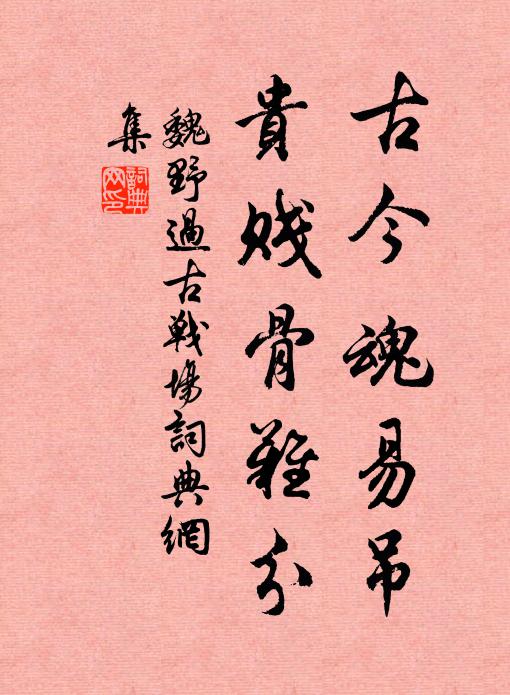 古今魂易吊
貴賤骨難分
魏野過古戰場詞典網
集
詞典
网印